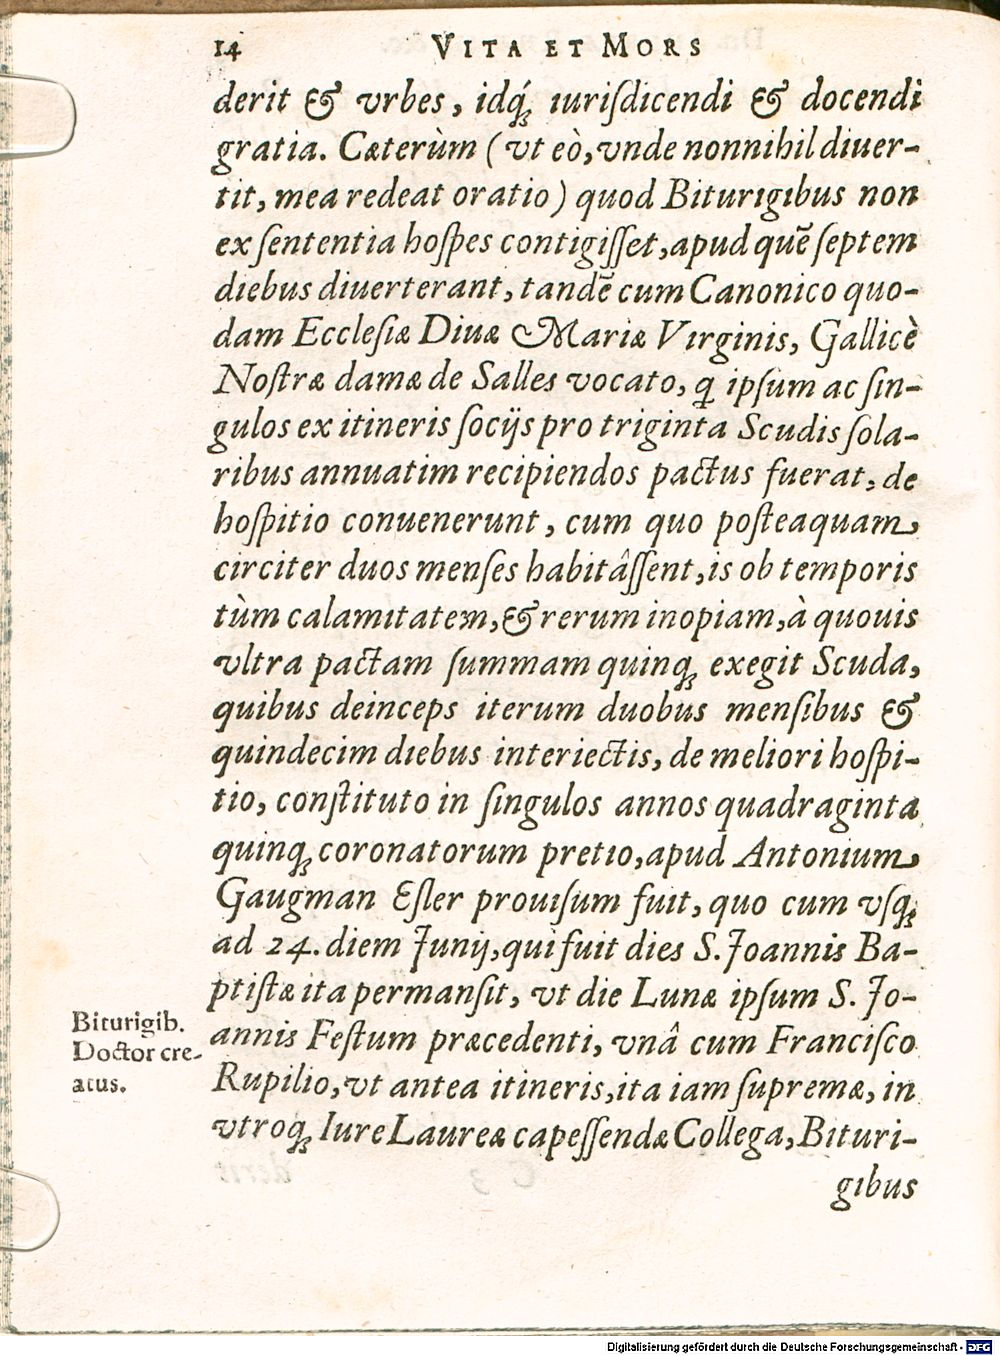 14 VITA ET MORS
derit & vrbes, idq́; iuriſdicendi & docendi
gratia. Cæterùm (vt eò, vnde nonnihil diuer-
tit, mea redeat oratio) quod Biturigibus non
ex ſententia hoſpes contigiſſet, apud quē ſeptem
diebus diuerterant, tandē cum Canonico quo-
dam Eccleſiæ Diuæ Mariæ Virginis, Gallicè
Noſtræ damæ de Salles vocato, ꝗ ipſum ac ſin-
gulos ex itineris ſocijs pro triginta Scudis ſola-
ribus annuatim recipiendos pactus fuerat, de
hoſpitio conuenerunt, cum quo poſteaquam
circiter duos menſes habitâſſent, is ob temporis
tùm calamitatem, & rerum inopiam, à quouis
vltra pactam ſummam quinq; exegit Scuda,
quibus deinceps iterum duobus menſibus &
quindecim diebus interiectis, de meliori hoſpi-
tio, conſtituto in ſingulos annos quadraginta
quinq; coronatorum pretio, apud Antonium
Gaugman Eſler prouiſum fuit, quo cum vſq;
ad 24. diem Junij, qui fuit dies S. Joannis Ba-
ptiſtæ ita permanſit, vt die Lunæ ipſum S. Jo-
annis Feſtum præcedenti, vnâ cum Franciſco
Rupilio, vt antea itineris, ita iam ſupremæ, in
vtroq; Iure Laureæ capeſſendæ Collega, Bituri-
gibus
Biturigib.
Doctor cre-
atus.
Digitalisierung gefördert durch die Deutsche Forschungsgemeinschaft - DFG